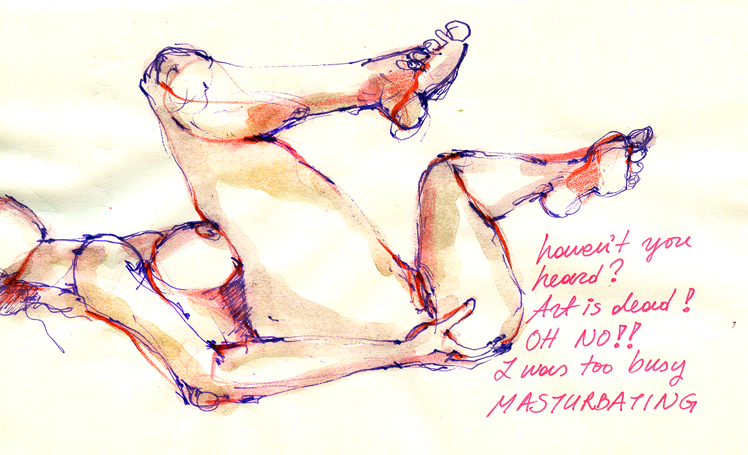 haven't you
heard?
Art is dead!
OH NO!!
I was too busy
MASTURBATING